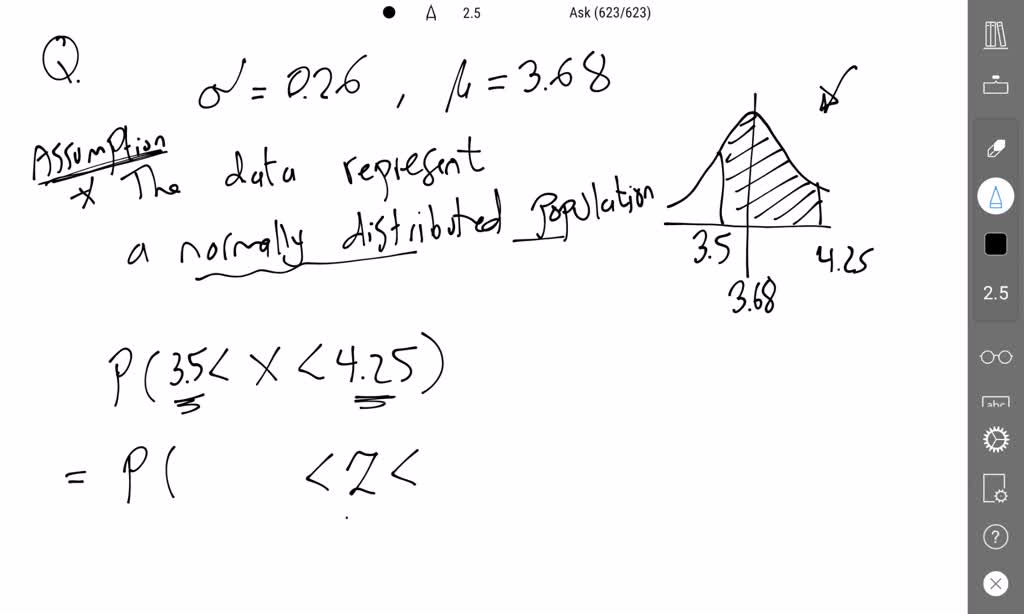 2.5 Ask (623/623)
Q.
σ = 0.26 , μ = 3.68
Assumption
* The data represent
a normally distributed population
3.5 4.25
3.68
P(3.5 < X < 4.25)
= P( < Z <
2.5
abc
?